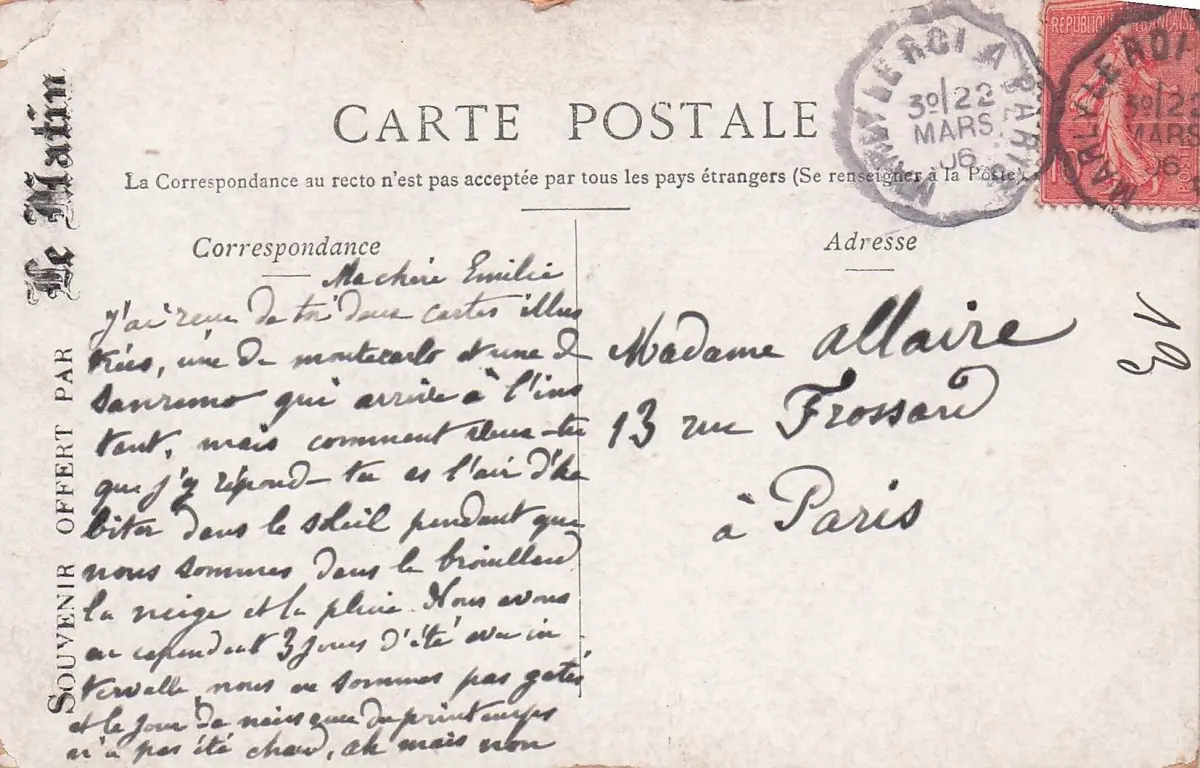 CARTE POSTALE
La Correspondance au recto n'est pas acceptée par tous les pays étrangers (Se renseigner à la Poste)
MARLY LE ROI A PARIS
3º/22
MARS
06
RÉPUBLIQUE FRANÇAISE
MARLY LE ROI
3º/22
MARS
06
SOUVENIR OFFERT PAR Le Matin
Correspondance
Ma chère Emilie
j'ai reçu de toi deux cartes illus
trées, une de montecarlo et une de
Sanremo qui arrive à l'ins
tant, mais comment veux-tu
que j'y répond- tu as l'air d'ha
biter dans le soleil pendant que
nous sommes dans le brouillard
la neige et la pluie. Nous avons
eu cependant 3 jours d'été avec in
tervalle, nous ne sommes pas gatés
et le jour de naissance du printemps
n'a pas été chaud, ah mais non
Adresse
Madame Allaire
13 rue Frossard
à Paris
193